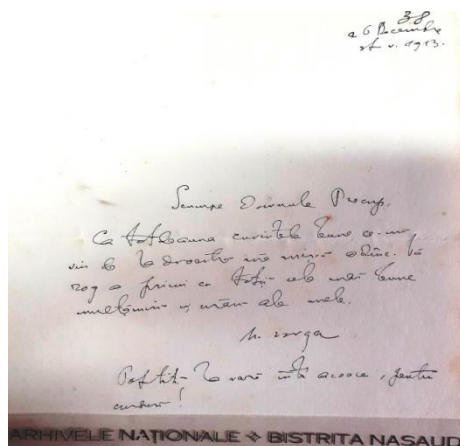 38
a 6 Decembre
st. v. 1913.
Scumpe Domnule Procop,
Ca totdeauna cuvintele bune ce-mi
vin de la
rog a primi cu toții cele mai bune
mulțămiri și urări ale mele.
N. Iorga
Poftiți la vară acoace, pentru
cursuri!
ARHIVELE NAȚIONALE ❖ BISTRITA NASAUD